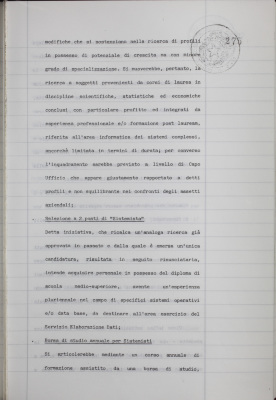 275
modifiche che si sostanziano nella ricerca di profili
in possesso di potenziale di crescita ma con minor
grado di specializzazione. Si muoverebbe, pertanto, la
ricerca a soggetti provenienti da corsi di laurea in
discipline scientifiche, statistiche ed economiche
conclusi con particolare profitto ed integrati da
esperienza professionale e/o formazione post lauream,
riferita all'area informatica dei sistemi complessi,
ancorchè limitata in termini di durata; per converso
l'inquadramento sarebbe previsto a livello di Capo
Ufficio che appare giustamente rapportato a detti
profili e non squilibrante nei confronti degli assetti
aziendali;
- Selezione a 2 posti di "Sistemista"
Detta iniziativa, che ricalca un'analoga ricerca già
approvata in passato e dalla quale è emersa un'unica
candidatura, risultata in seguito rinunciataria,
intende acquisire personale in possesso del diploma di
scuola medio-superiore, avente un'esperienza
pluriennale nel campo di specifici sistemi operativi
e/o data base, da destinare all'area esercizio del
Servizio Elaborazione Dati;
- Borsa di studio annuale per Sistemisti
Si articolerebbe mediante un corso annuale di
formazione assistito da una borsa di studio,